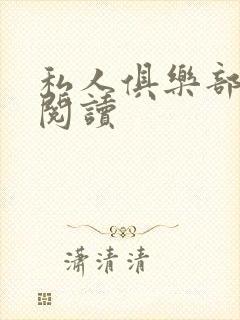 私人俱樂部
閱讀
瀟清清